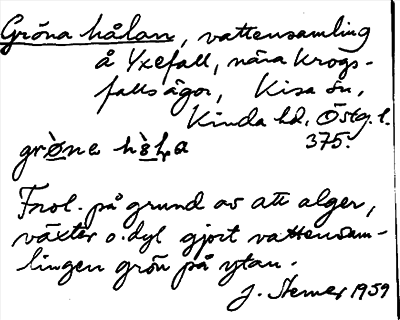 Gröna hålan, vattensamling
å Yxefall, nära Krogs-
falls ägor, Kisa sn,
Kinda hd, Östg. l.
375.
grø̀na hål̥a
Trol. på grund av att alger,
växter o. dyl gjort vattensam-
lingen grön på ytan.
J. Stemer 1959